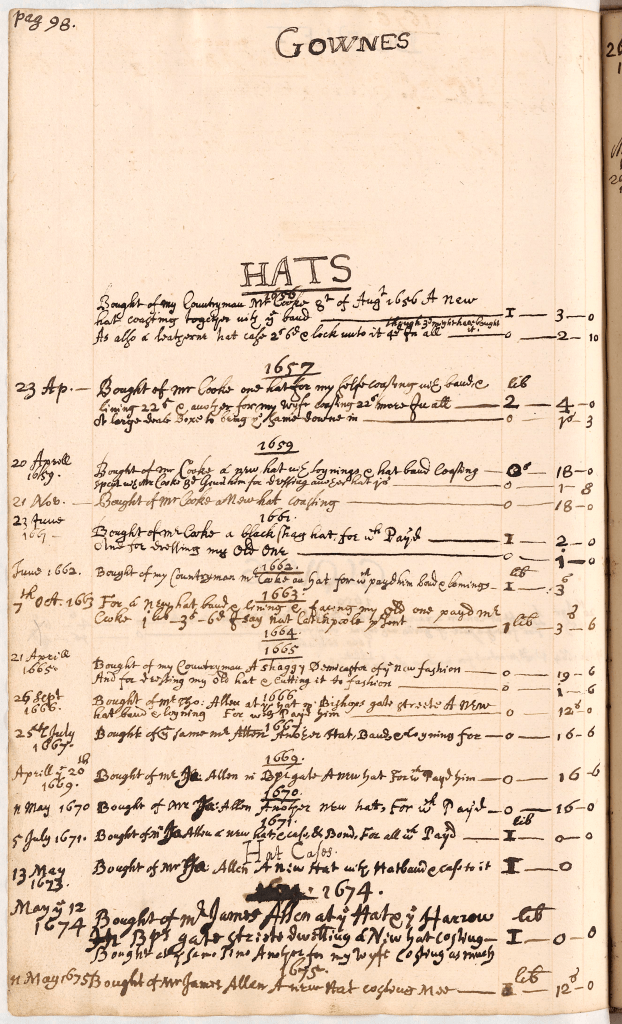 pag 98.
GOWNES
HATS
1656
Bought of my Countryman Mr Cooke 8th of Augt 1656 A new
hat coasting together with ye band I — 3 — 0
though 3d might have bought it
As also a leatherne hat case 2s 6d & lock unto it 4d In all 0 — 2 — 10
1657
23 Ap. — Bought of mr Cooke one hat for my selfe coasting with band & lib
lining 22s & another for my wyfe coasting 22s more In all — 2 — 4 — 0
A large deale Boxe to bring ye same downe in — 0 — 1 — 3
1659
20 Aprill 1659. Bought of Mr Cooke a new hat with lynings & hat band Coasting — 0 — 18 — 0
for dressing — 1 — 8
21 Nov. — Bought of Mr Cooke a New hat coasting 0 — 18 — 0
1661
23 June 1661 Bought of mr Cooke a black shag hat for wch Payd — I — 2 — 0
One for dressing my Old One — 0 — 1 — 0
1662.
June 1662. Bought of my Countryman mr Cooke an hat for wch payd him Band & Linings — lib I — 3
1663
7th Oct. 1663 For a New hat band & lining & facing my old one payd Mr
Cooke 1 lib — 3s — 6d I say Nat Catchpoole present 1 lib 3 — 6
1664
1665
21 Aprill 1665. Bought of my Countryman A shaggy Demicastor of ye New fashion — 0 — 19 — 6
And for dressing my old hat & Cutting it to fashion — 0 — 1 — 6
1666
26 Sept 1666. Bought of Mr Tho: Allen at ye hat in Bishops gate streete A New
hat band & lyning For wch Payd him — 0 — 12 — 0
1667
25th July 1667. Bought of ye same mr Allen Another Hat, Band & Lyning for — 0 — 16 — 6
1669.
Aprill ye 20th 1669. Bought of mr Ja: Allen in Bps gate A new hat For wch Payd him — 0 — 16 — 6
1670
11 May 1670 Bought of Mr Ja: Allen Another new hat, For wch Pay'd — 0 — 16 — 0
1671.
5 July 1671. Bought of mr Ja Allen a new hat & case, & Band, For all wch Pay'd — lib I — 0 — 0
Hat Cases.
13 May 1673. Bought of Mr Ja. Allen A new Hat with Hatband & case to it I — 0
1674.
May ye 12 1674 Bought of mr James Allen at ye Hat & ye Harrow lib
In Bps gate streete dwelling a New hat costing — I — 0 — 0
Bought at ye same Time Another for my Wyfe Costing as much
1675.
11 May 1675 Bought of Mr James Allen A new Hat costing Mee — lib I — 12 — 0